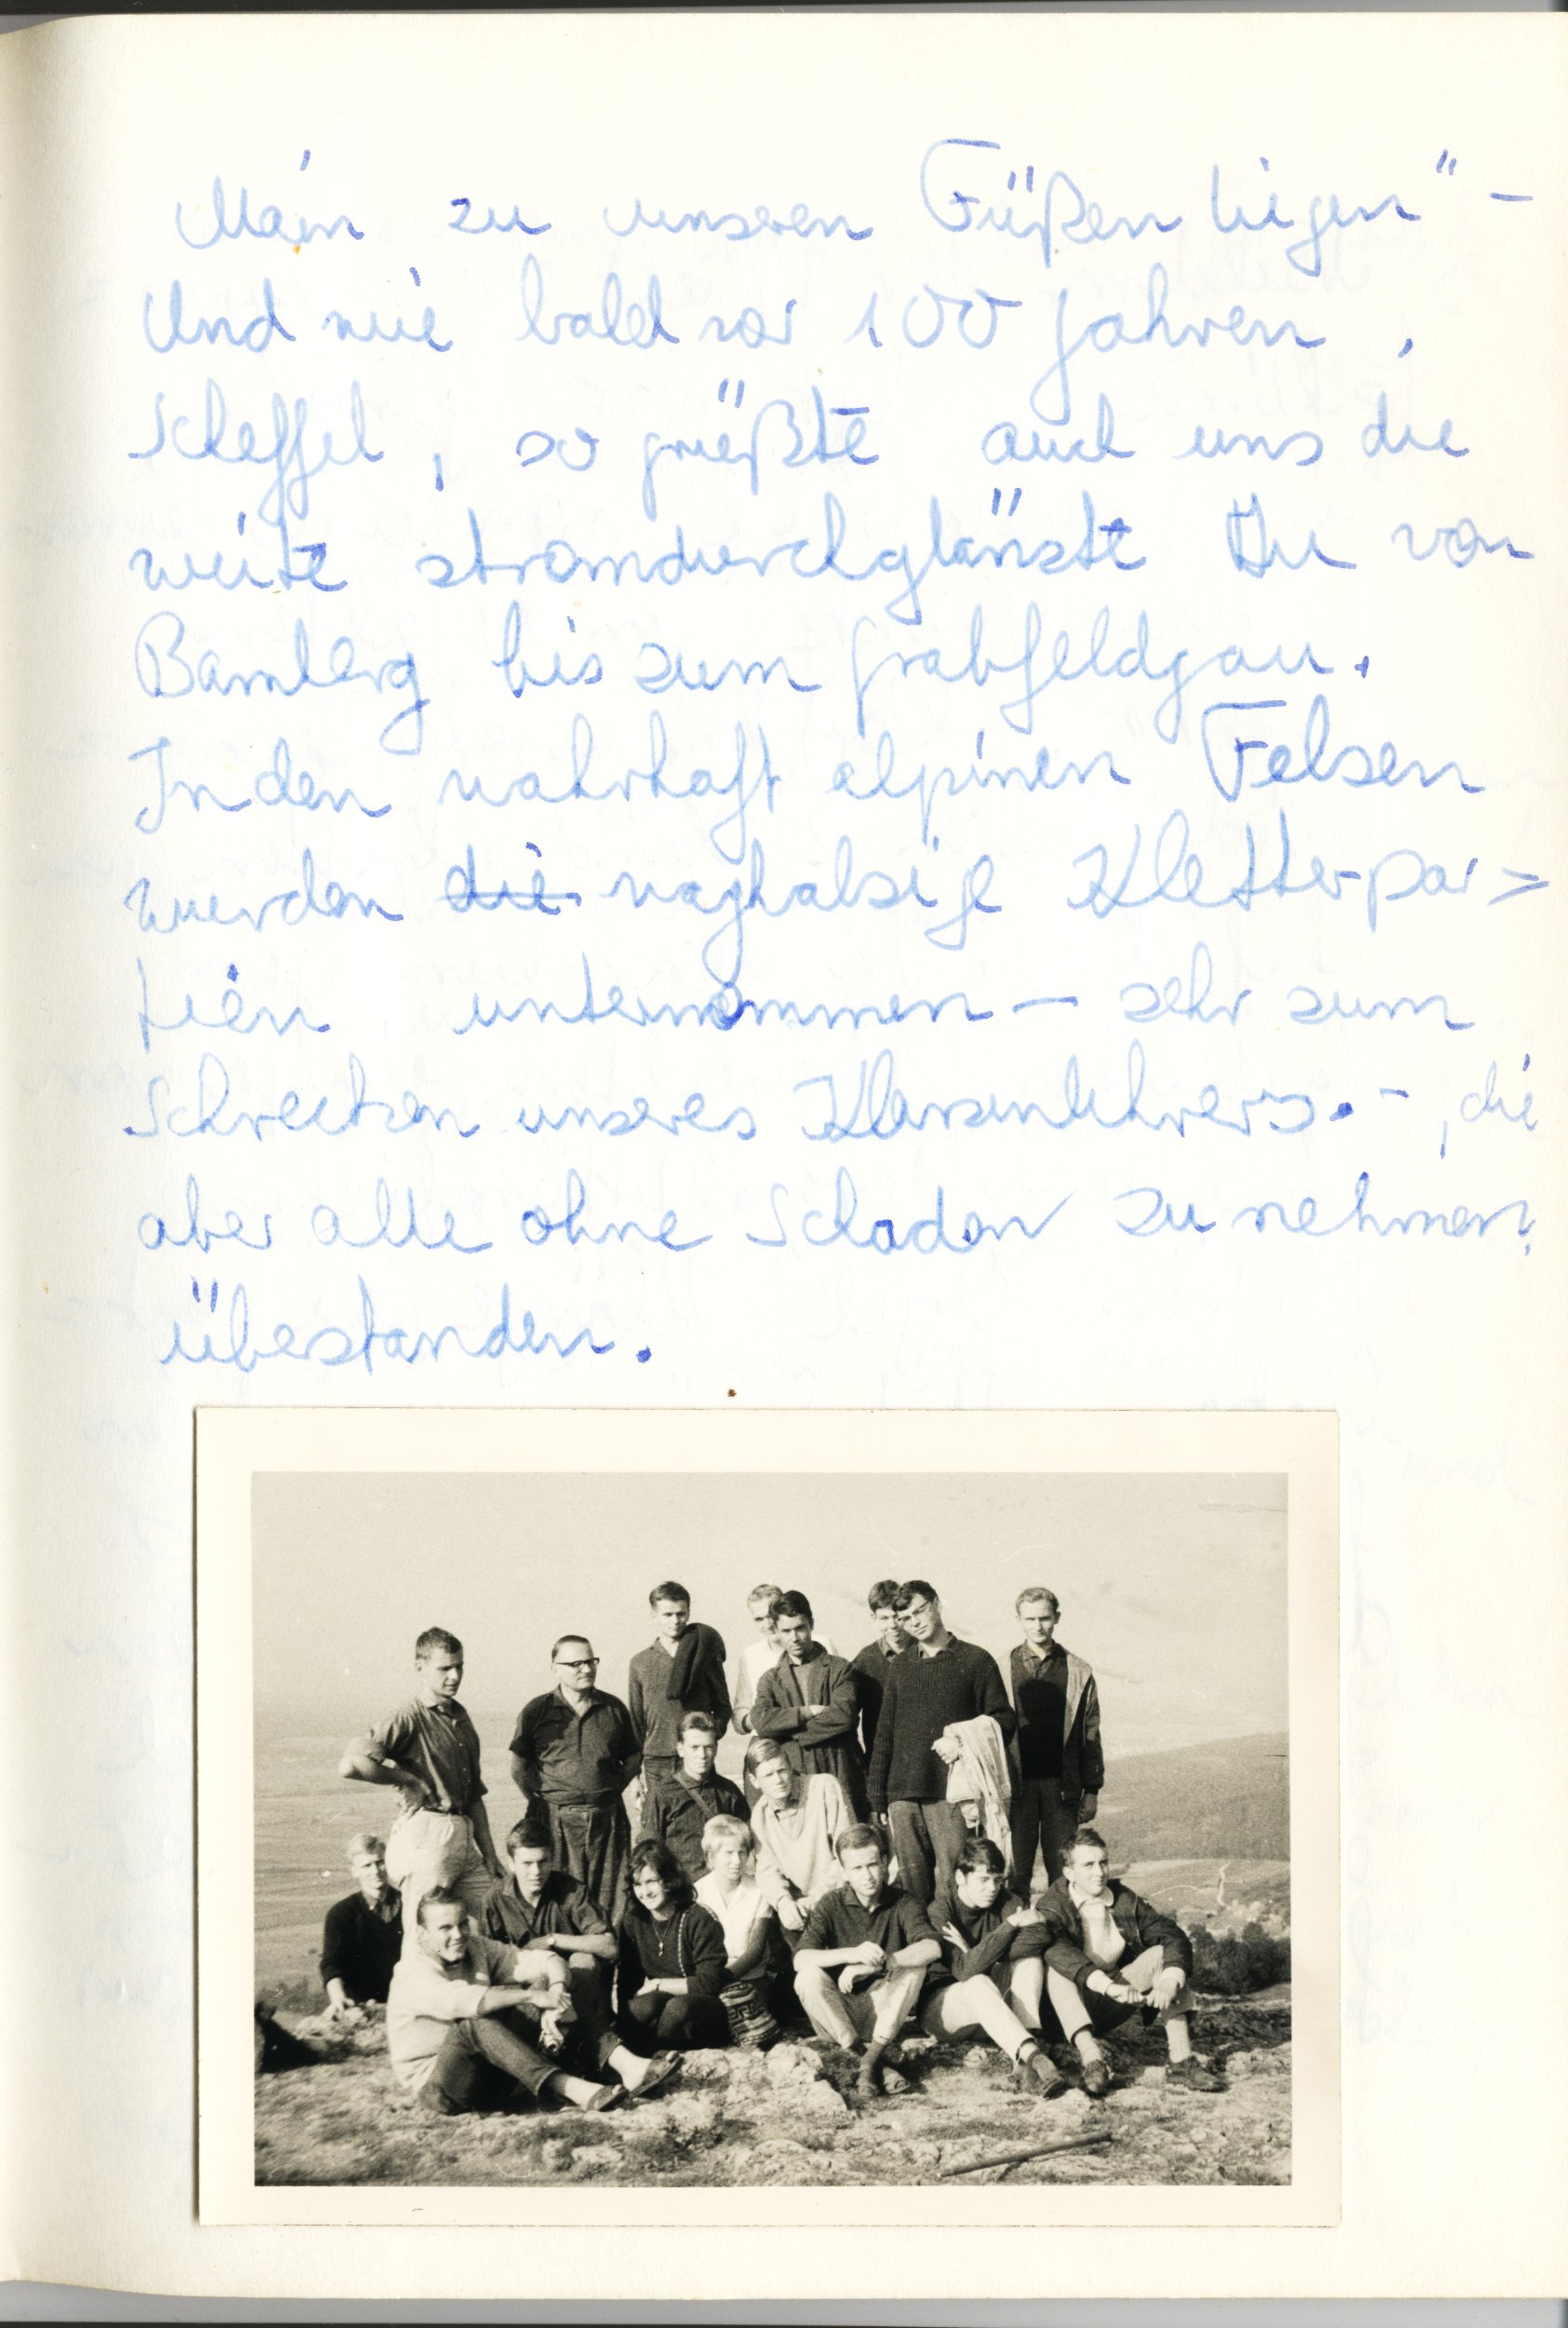 Main zu unseren Füßen liegen" –
Und wie bald vor 100 Jahren ,
Scheffel , so grüßte auch uns die
weite stromdurchglänzte Au von
Bamberg bis zum Grabfeldgau.
In den wahrhaft alpinen Felsen
wurden die waghalsige Kletterpar=
tien unternommen – sehr zum
Schrecken unseres Klassenlehrers. – , die
aber alle ohne Schaden zu nehmen
übestanden.